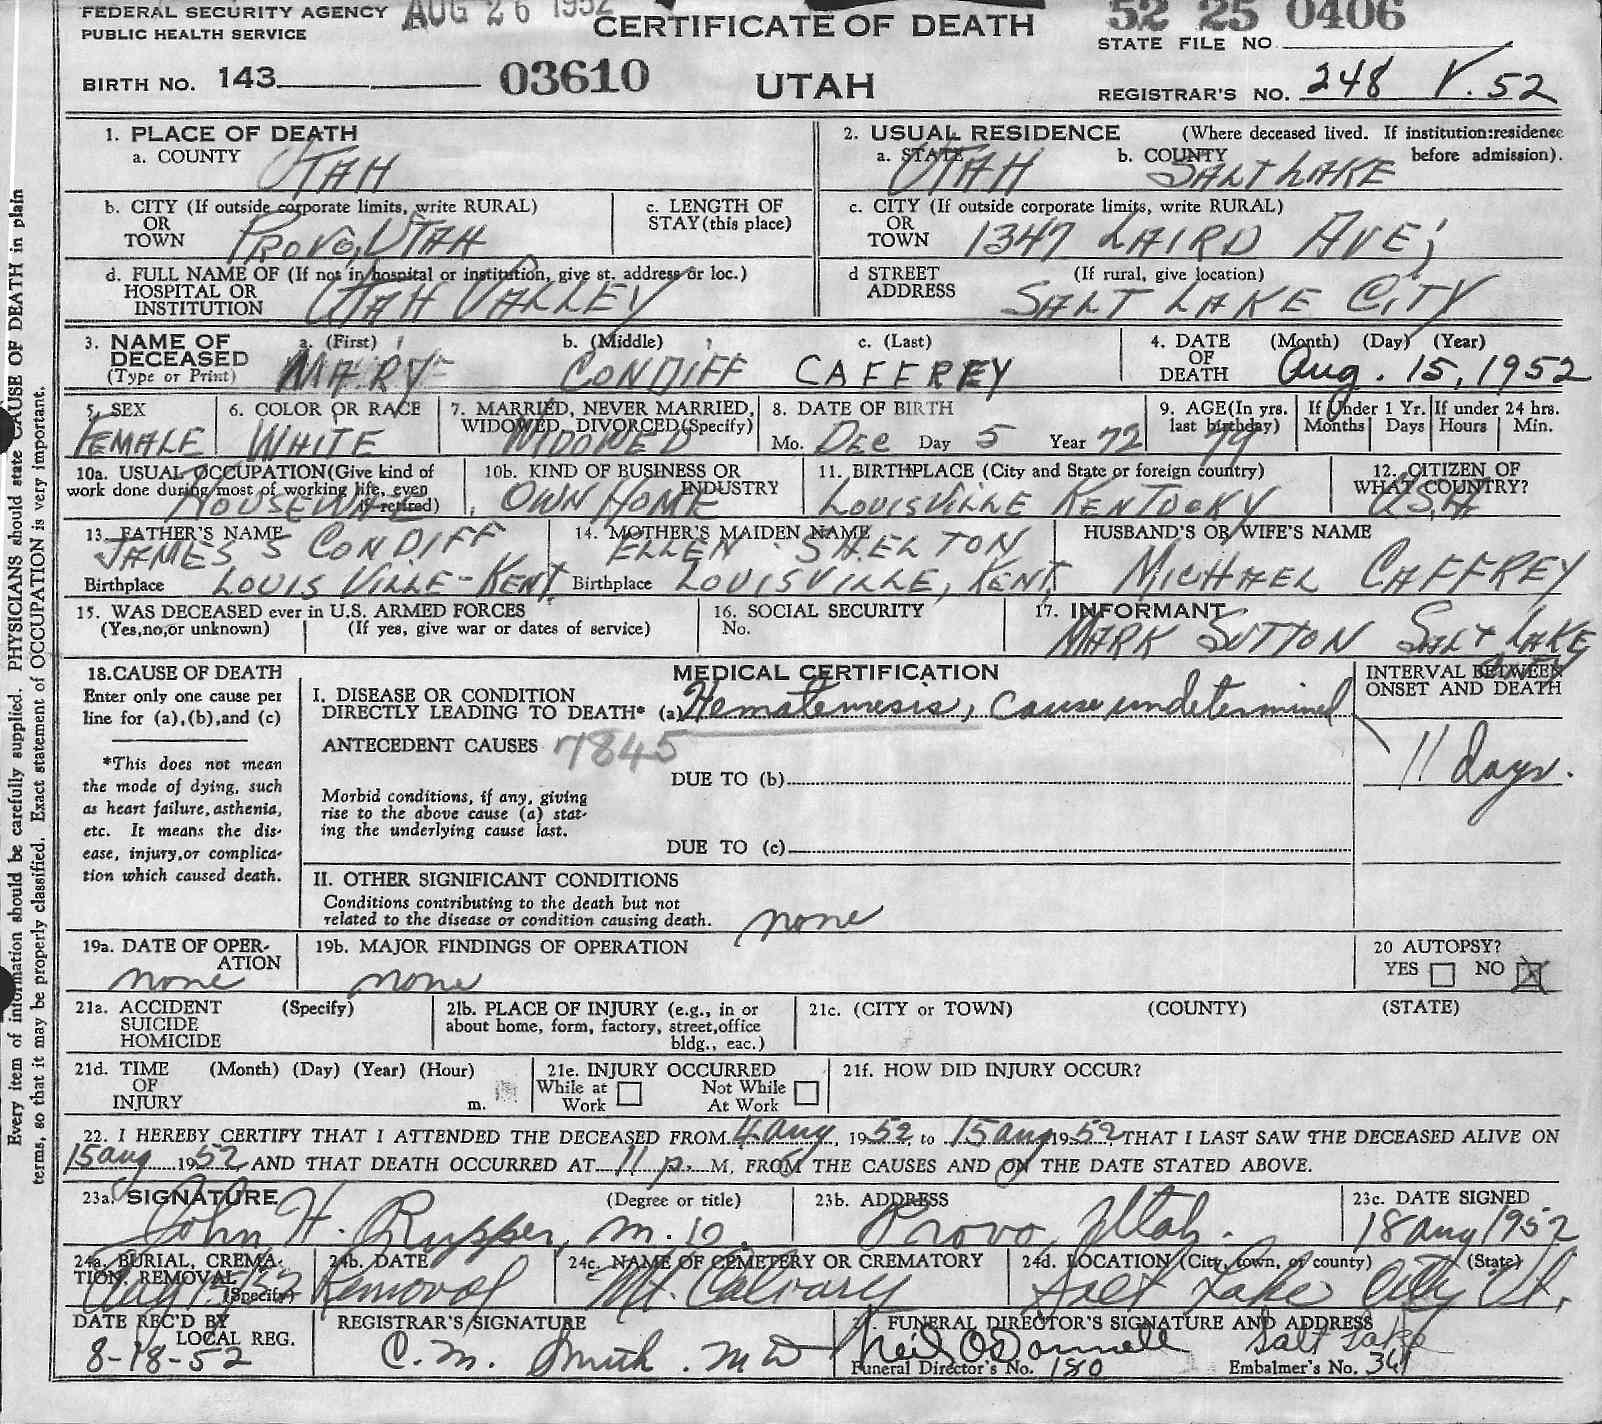 FEDERAL SECURITY AGENCY
PUBLIC HEALTH SERVICE
AUG 26 1952
CERTIFICATE OF DEATH
52 25 0406
STATE FILE NO.
BIRTH NO. 143
03610
UTAH
REGISTRAR'S NO. 248 V. 52
1. PLACE OF DEATH
a. COUNTY UTAH
2. USUAL RESIDENCE (Where deceased lived. If institution:residence before admission).
a. STATE UTAH b. COUNTY SALT LAKE
b. CITY (If outside corporate limits, write RURAL)
OR
TOWN PROVO, UTAH
c. LENGTH OF
STAY (this place)
c. CITY (If outside corporate limits, write RURAL)
OR
TOWN 1347 LAIRD AVE;
d. FULL NAME OF (If not in hospital or institution, give st. address or loc.)
HOSPITAL OR
INSTITUTION UTAH VALLEY
d STREET (If rural, give location)
ADDRESS SALT LAKE CITY
3. NAME OF DECEASED (Type or Print)
a. (First) b. (Middle) c. (Last)
MARY CONDIFF CAFFREY
4. DATE OF DEATH (Month) (Day) (Year)
Aug. 15, 1952
5. SEX
FEMALE
6. COLOR OR RACE
WHITE
7. MARRIED, NEVER MARRIED,
WIDOWED, DIVORCED (Specify)
WIDOWED
8. DATE OF BIRTH
Mo. DEC Day 5 Year 72
9. AGE (In yrs. last birthday)
79
If Under 1 Yr.
Months Days
If under 24 hrs.
Hours Min.
10a. USUAL OCCUPATION (Give kind of
work done during most of working life, even
if retired)
HOUSEWIFE
10b. KIND OF BUSINESS OR
INDUSTRY
OWN HOME
11. BIRTHPLACE (City and State or foreign country)
LOUISVILLE KENTUCKY
12. CITIZEN OF
WHAT COUNTRY?
U.S.A
13. FATHER'S NAME
JAMES S CONDIFF
Birthplace LOUISVILLE-KENT.
14. MOTHER'S MAIDEN NAME
ELLEN SHELTON
Birthplace LOUISVILLE, KENT.
HUSBAND'S OR WIFE'S NAME
MICHAEL CAFFREY
15. WAS DECEASED ever in U.S. ARMED FORCES
(Yes,no,or unknown) (If yes, give war or dates of service)
16. SOCIAL SECURITY
No.
17. INFORMANT
MARK SUTTON SALT LAKE
CITY
18. CAUSE OF DEATH
Enter only one cause per
line for (a),(b),and (c)
*This does not mean
the mode of dying, such
as heart failure, asthenia,
etc. It means the dis-
ease, injury, or complica-
tion which caused death.
MEDICAL CERTIFICATION
I. DISEASE OR CONDITION
DIRECTLY LEADING TO DEATH* (a) Hematemesis, cause undetermined
ANTECEDENT CAUSES 7845
DUE TO (b)
Morbid conditions, if any, giving
rise to the above cause (a) stat-
ing the underlying cause last.
DUE TO (c)
INTERVAL BETWEEN
ONSET AND DEATH
11 days.
II. OTHER SIGNIFICANT CONDITIONS
Conditions contributing to the death but not
related to the disease or condition causing death. none
19a. DATE OF OPER-
ATION
none
19b. MAJOR FINDINGS OF OPERATION
none
20 AUTOPSY?
YES NO X
21a. ACCIDENT (Specify)
SUICIDE
HOMICIDE
21b. PLACE OF INJURY (e.g., in or
about home, form, factory, street,office
bldg., eac.)
21c. (CITY or TOWN) (COUNTY) (STATE)
21d. TIME (Month) (Day) (Year) (Hour)
OF
INJURY m.
21e. INJURY OCCURRED
While at Work
Not While At Work
21f. HOW DID INJURY OCCUR?
22. I HEREBY CERTIFY THAT I ATTENDED THE DECEASED FROM 4 aug, 1952 to 15 aug 1952 THAT I LAST SAW THE DECEASED ALIVE ON
15 aug 1952 AND THAT DEATH OCCURRED AT 11 p. M, FROM THE CAUSES AND ON THE DATE STATED ABOVE.
23a. SIGNATURE (Degree or title)
John H. Rupper, M.D.
23b. ADDRESS
Provo, Utah.
23c. DATE SIGNED
18 aug 1952
24a. BURIAL, CREMA-
TION, REMOVAL
(Specify)
Aug 15/52
24b. DATE
Removal
24c. NAME OF CEMETERY OR CREMATORY
Mt. Calvary
24d. LOCATION (City, town, or county) (State)
Salt Lake City Ut.
DATE REC'D BY
LOCAL REG.
8-18-52
REGISTRAR'S SIGNATURE
C. M. Smith. MD
FUNERAL DIRECTOR'S SIGNATURE AND ADDRESS
Neil O'Donnell Salt Lake
Funeral Director's No. 180 Embalmer's No. 341
Every item of information should be carefully supplied. PHYSICIANS should state CAUSE OF DEATH in plain
terms, so that it may be properly classified. Exact statement of OCCUPATION is very important.